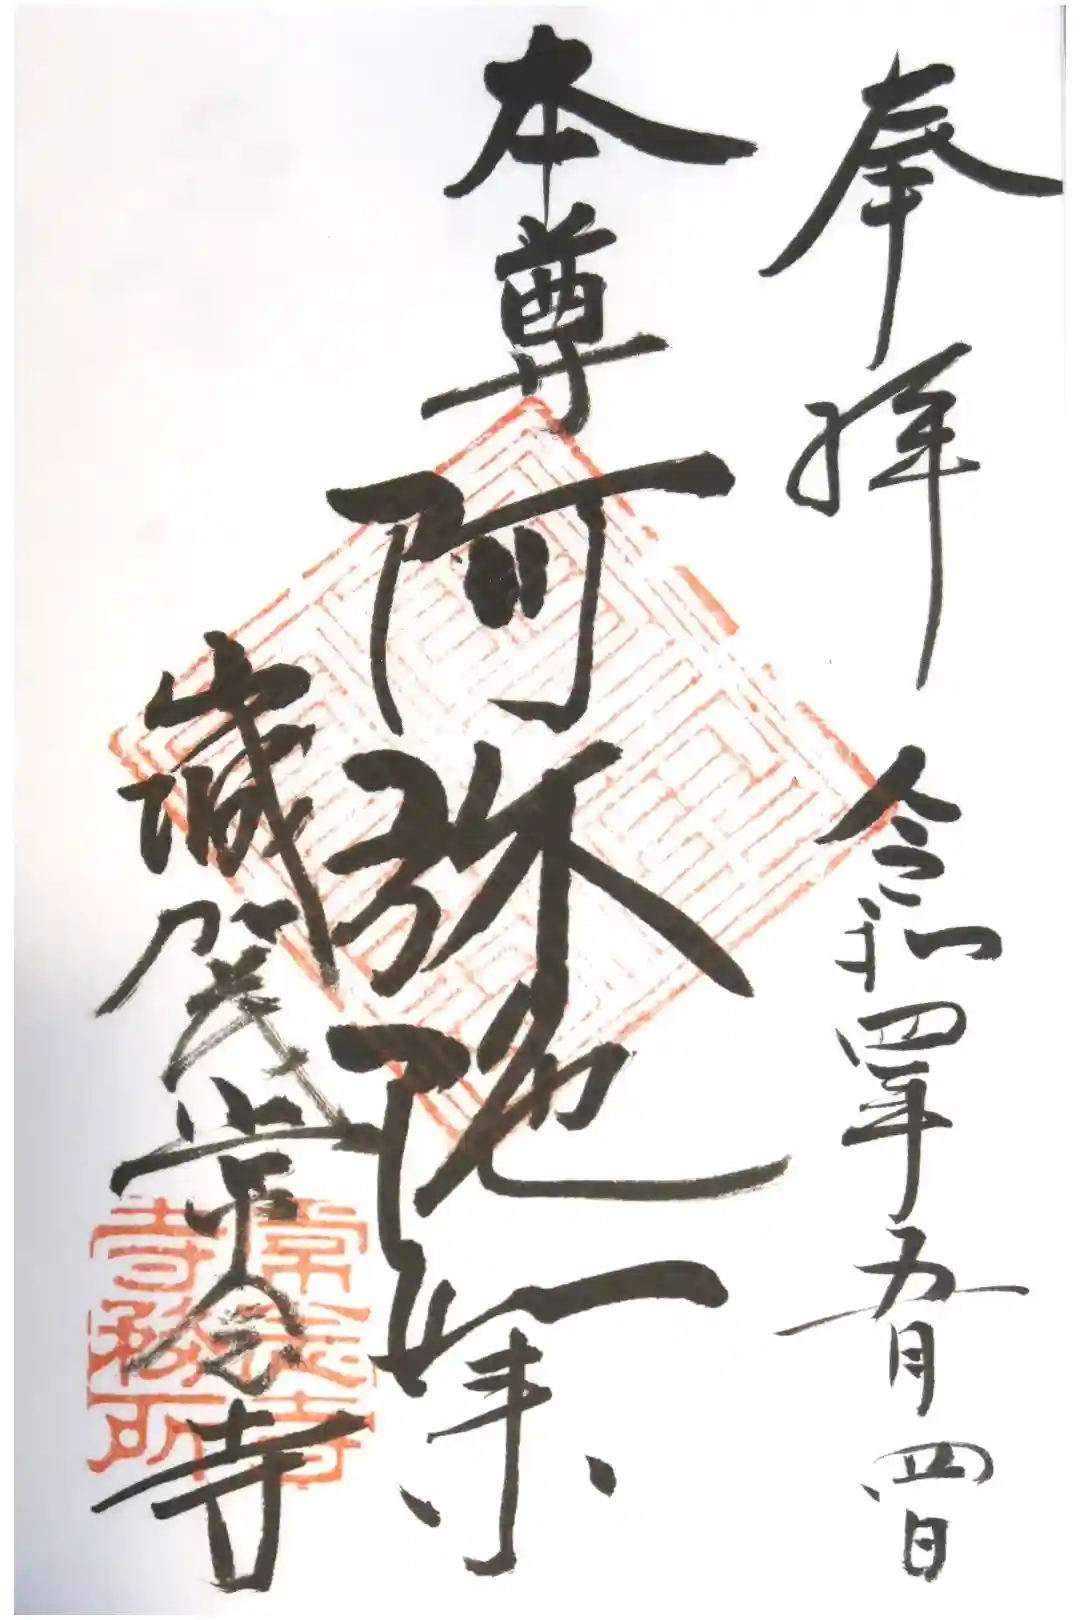 奉拝　令和四年五月四日
本尊
阿弥陀如来
常念寺
常念寺
寺務所